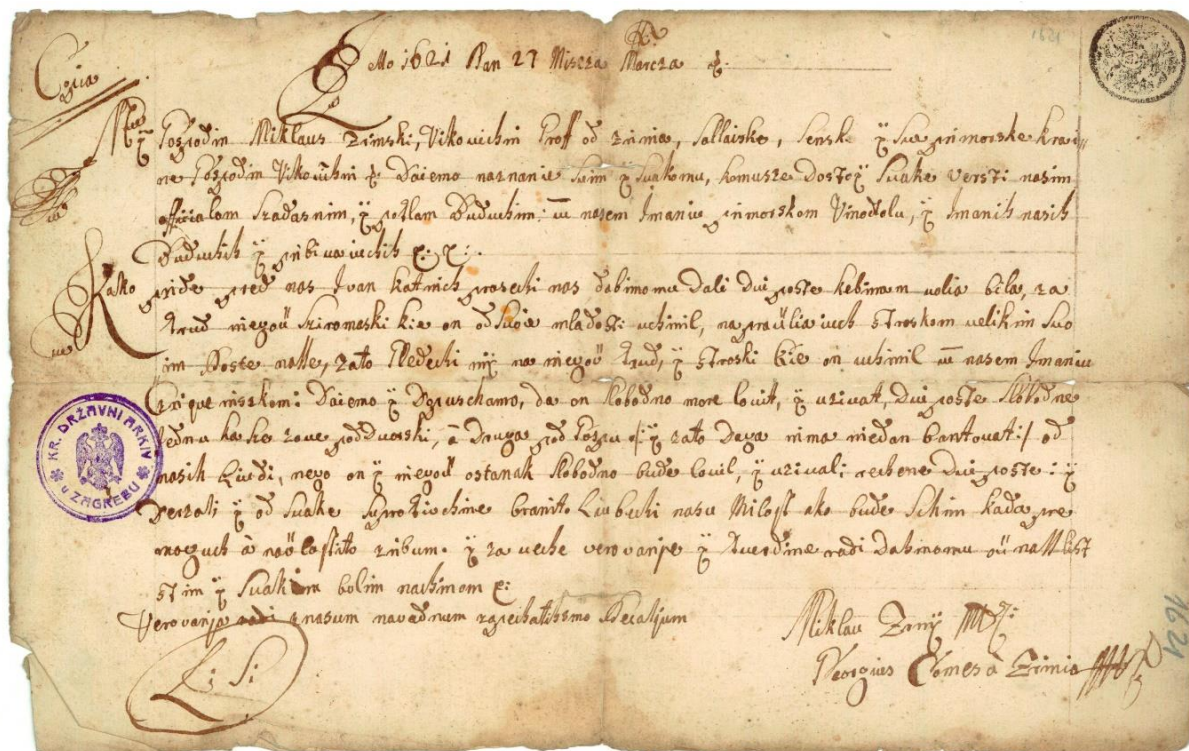 Copia
Letto 1621 Dan 27 Miseza Marcza &.
1621
My Gospodin Miklaus Zrinski, Vikovichni Groff od Zrinia, Sallaiske, Senske ÿ Sve primorske krai
ne Gospodin Vikovichni &. Daiemo na znanie Svim ÿ Svakomu, komusze dostoÿ Svake versti nasim
officialom Szadasnim, ÿ potlam Buduchim; u nasem Imaniu primorskom Vinodolu, ÿ Imanih nasih
Buduchih ÿ pribivaiuchih &: &:
Kako pride pred nas Ivan Katnich prosechi nas dabimomu dali dvi poste kebinam volia bila, za
trud niegoů Sziromaski kie on od Svoie mladosti uchinil, napraůliaiuch stroskom velikim Svo
im Poste nasse, zato Gledechi mÿ na niegoů trud, ÿ stroski kie on uchinil u nasem Imaniu
Crique niczkom: Daiemo ÿ Dopuschamo, da on slobodno more lovit, ÿ uzivat, dvi poste slobodne
iednu kasse zove pod dvorski, à druga pod /: ÿ zato dega nima niedan bantovati :/ od
nasih Liudi, nego on ÿ niegoů ostanak slobodno bude lovil, ÿ uzivali rechene dvi poste: ÿ
Derzati ÿ od Svake suprotivchine branit. Liubechi nasu Milost ako bude Schim kada pre
moguch à naůlastito ribum. ÿ za veche verovanje ÿ tverdine radi dabimomu oů nass List
stim ÿ Svakim bolim nachinom &:
Verovanja radi znasum navadnum zapechatismo Pecatjum
Miklau Zriny
Georgius Comes à Zrinio
L: S:
KR. DRŽAVNI ARKIV
U ZAGREBU
1621